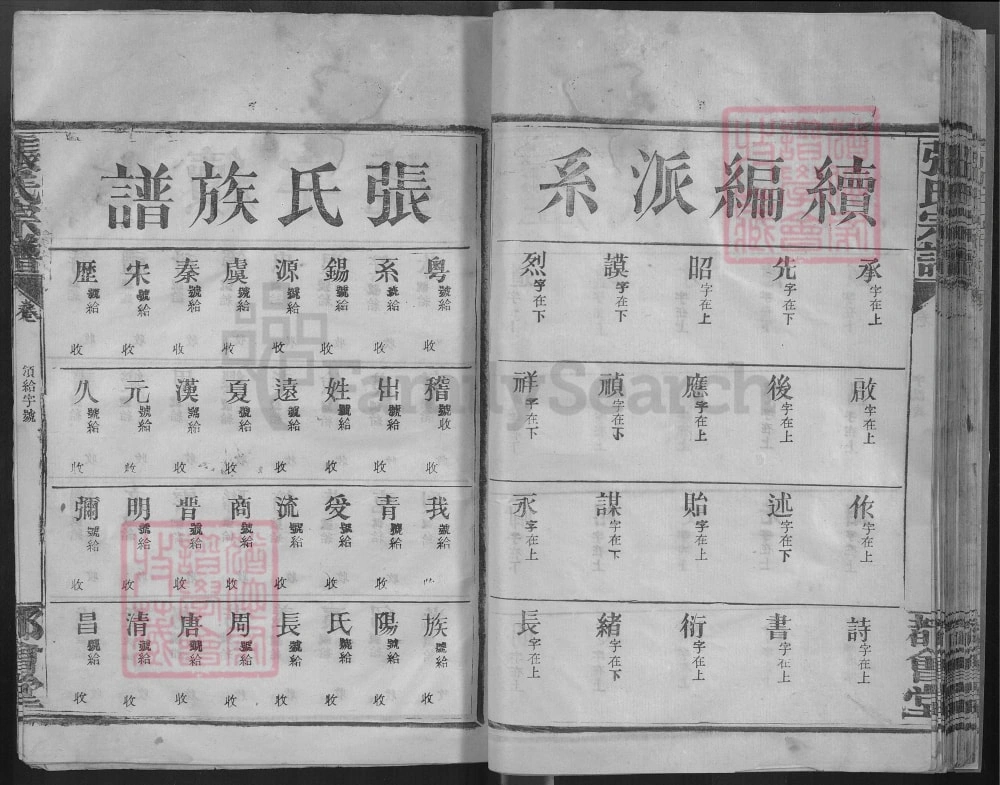 續編派系
承字在上
啟字在上
依字在上
詩字在上
先字在下
後字在上
述字在下
書字在上
昭字在上
應字在上
貽字在上
衍字在上
謨字在下
禎字在下
謀字在下
緒字在下
烈字在下
祥字在下
永字在上
長字在上
張氏宗譜
都會堂
張氏族譜
粵號給 收
稽號收 收
我號給 收
族號給 收
系號給 收
出號給 收
青號給 收
陽號給 收
錫號給 收
姓號給 收
受號給 收
氏號給 收
源號給 收
遠號給 收
流號給 收
長號給 收
虞號給 收
夏號給 收
商號給 收
周號給 收
秦號給 收
漢號給 收
晋號給 收
唐號給 收
宋號給 收
元號給 收
明號給 收
清號給 收
歷號給 收
久號給 收
彌號給 收
昌號給 收
張氏宗譜 卷 頒給字號 都會堂
FamilySearch